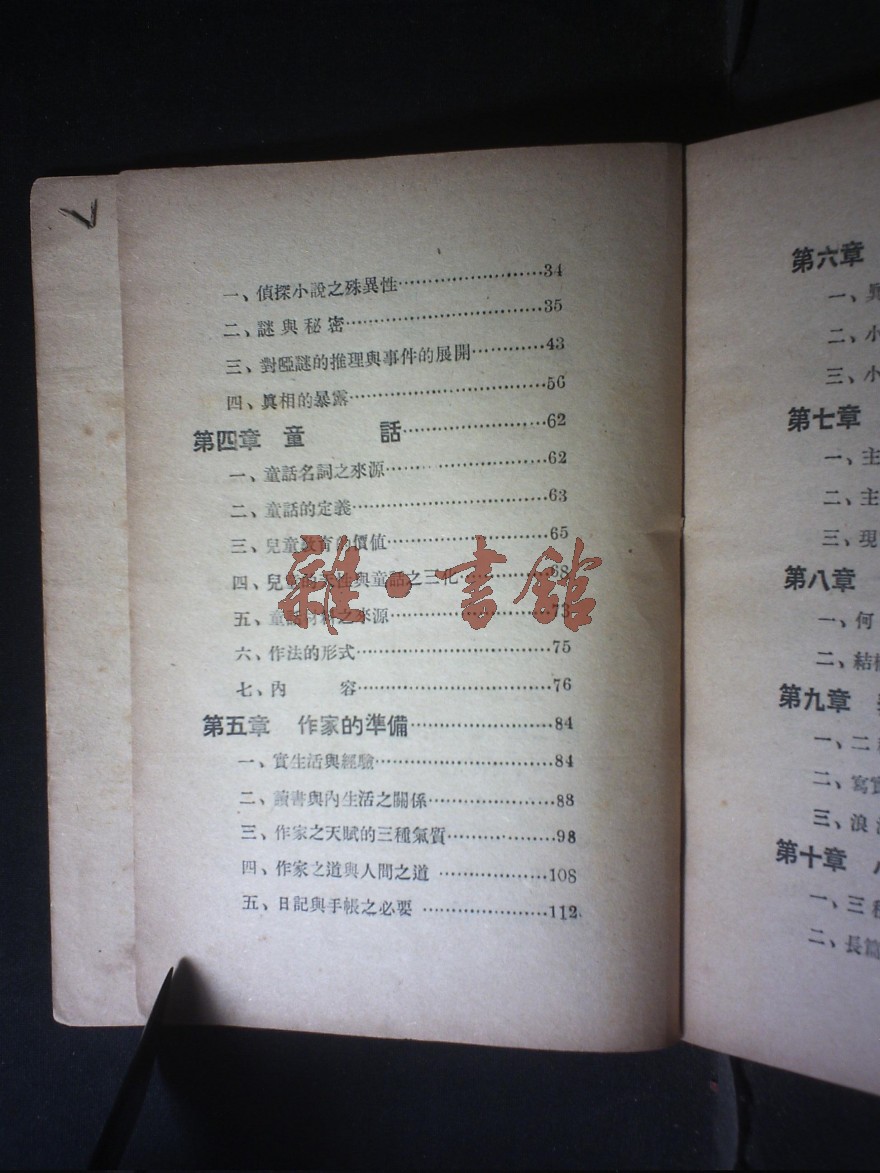 一、偵探小說之殊異性……………………34
二、謎與秘密……………………………35
三、對啞謎的推理與事件的展開…………43
四、眞相的暴露…………………………56
第四章 童　　話……………………62
一、童話名詞之來源……………………62
二、童話的定義…………………………63
三、兒童教育的價值……………………65
四、兒童的天性與童話之三化……………68
五、童話材料之來源……………………73
六、作法的形式…………………………75
七、內　　容……………………………76
第五章 作家的準備……………………84
一、實生活與經驗………………………84
二、讀書與內生活之關係…………………88
三、作家之天賦的三種氣質………………98
四、作家之道與人間之道…………………108
五、日記與手帳之必要……………………112
雜·書館
第六章
一、異
二、小
三、小
第七章
一、主
二、主
三、現
第八章
一、何
二、結構
第九章
一、二
二、寫實
三、浪
第十章
一、三種
二、長篇